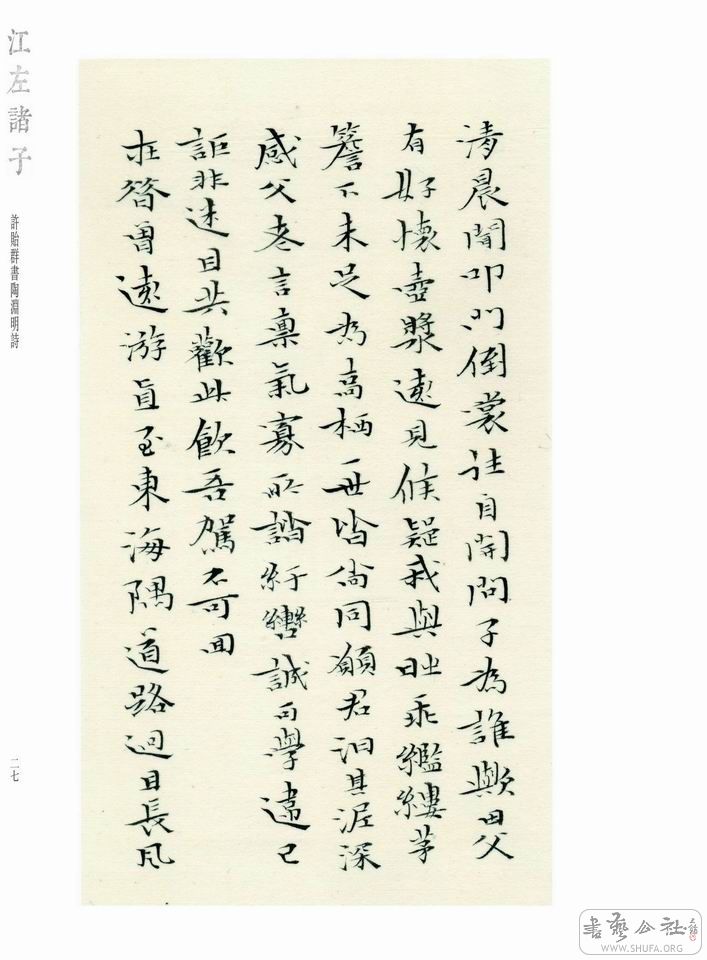 清晨聞叩門倒裳往自開問子為誰歟田父
有好懷壺漿遠見候疑我與時乖繿縷茅
簷下未足為高栖一世皆尚同願君汩其泥深
感父老言稟氣寡所諧紆轡誠可學違己
詎非迷且共歡此飲吾駕不可回
在昔曾遠游直至東海隅道路迥且長風
江左諸子
許貽群書陶淵明詩
二七
書藝公社
www.SHUFA.ORG